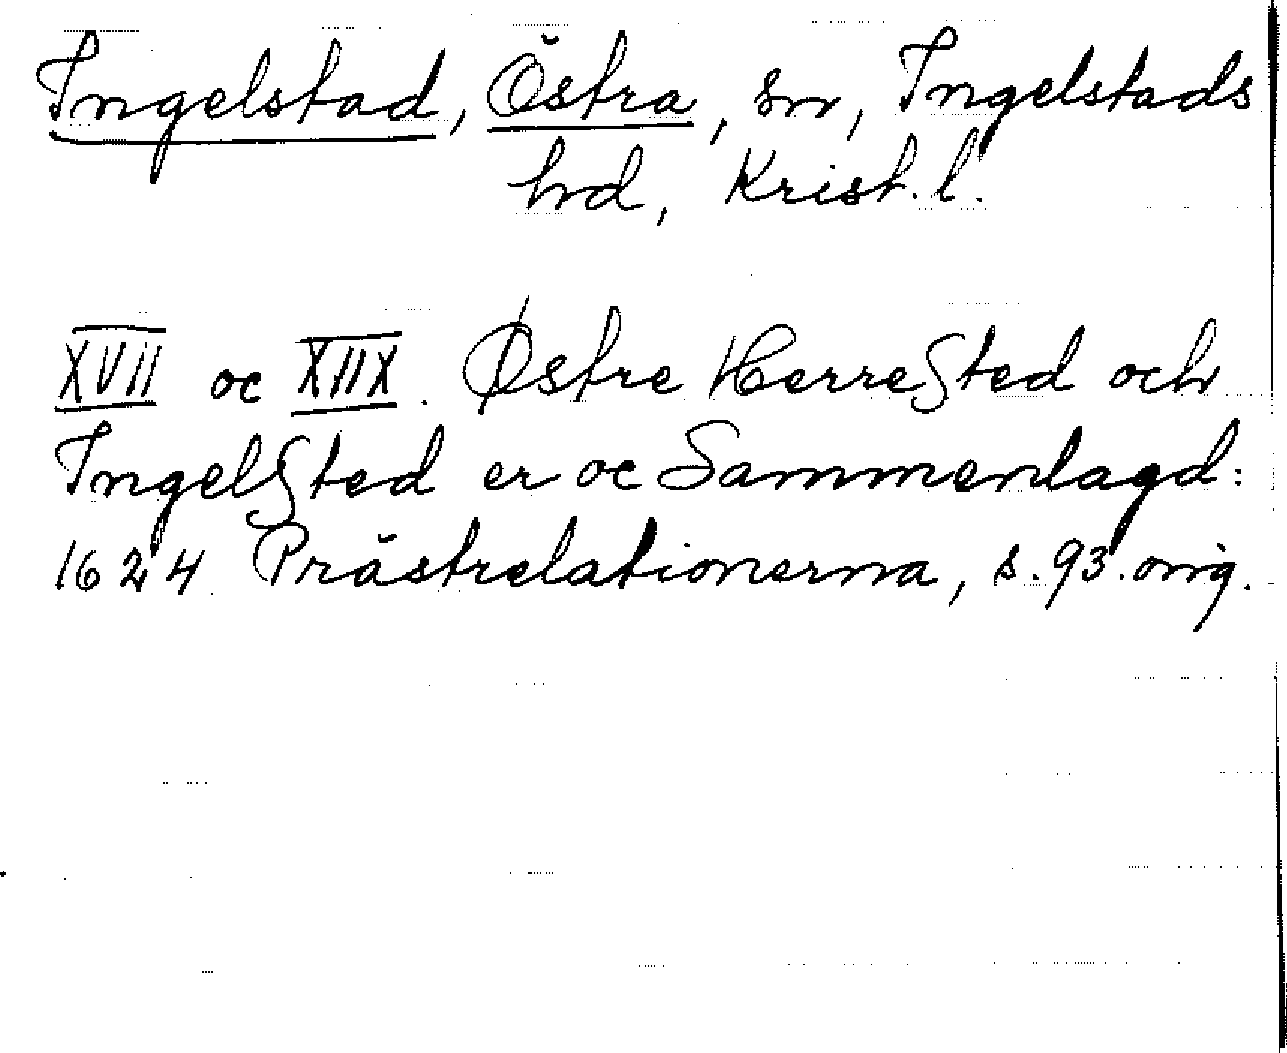 Ingelstad, Östra, sn, Ingelstads
hd, Krist. l.
XVII oc XIIX. Østre HerreSted och
IngelSted er oc Sammenlagd:
1624 Prästrelationerna, s. 93. orig.